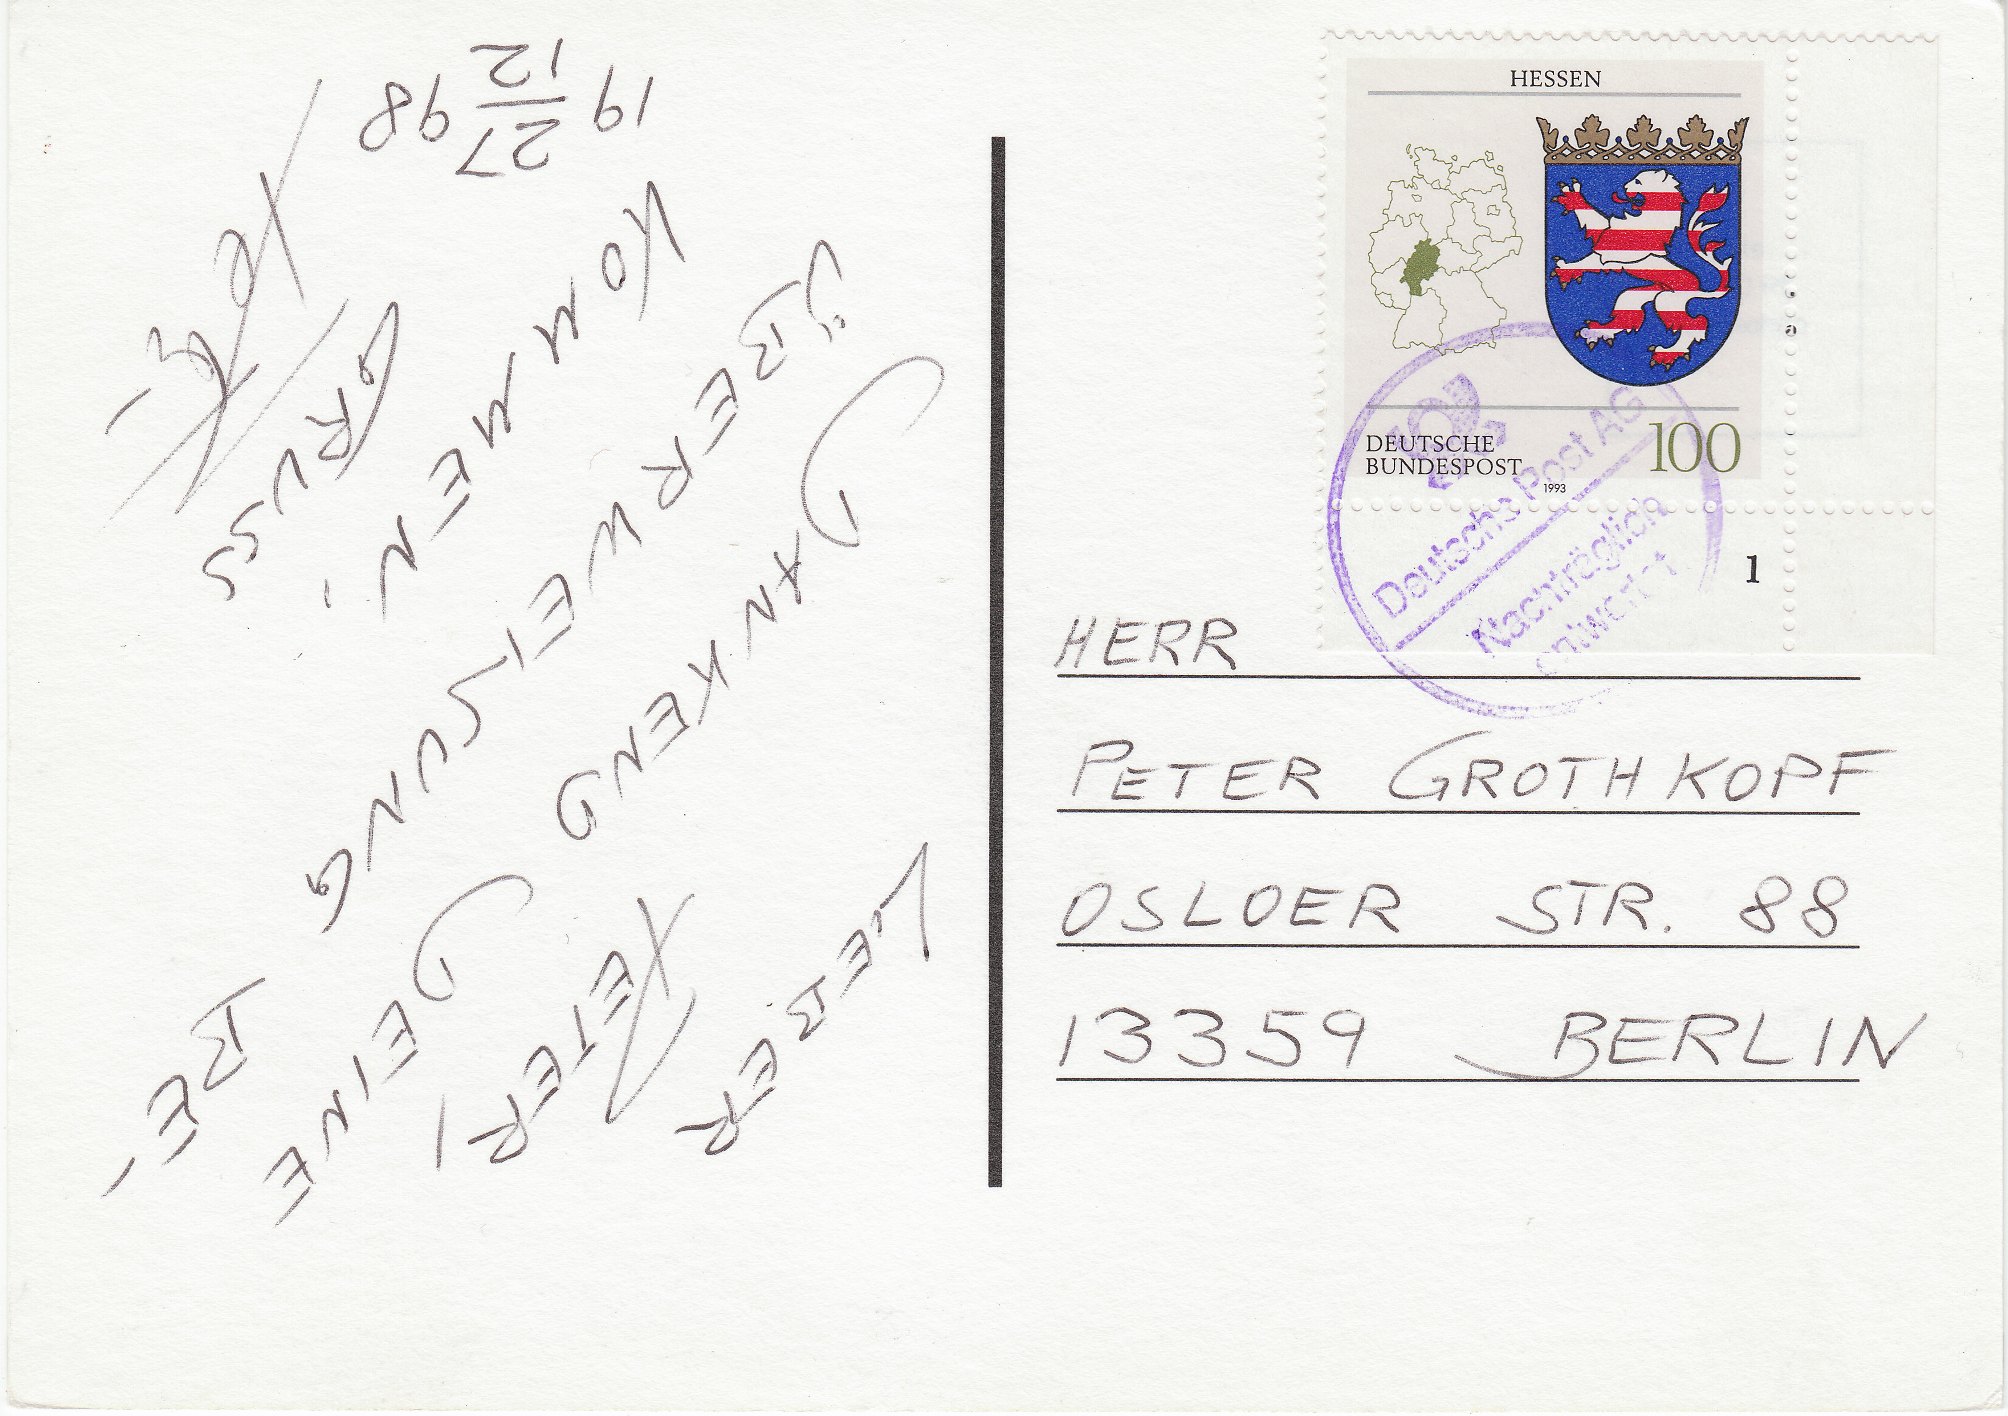 HESSEN
DEUTSCHE
BUNDESPOST
100
1993
1
Deutsche Post AG
Nachträglich
entwertet
HERR
PETER GROTHKOPF
OSLOER STR. 88
13359 BERLIN
LIEBER
PETER!
DANKEND DEINE
ÜBERWEISUNG BE-
KOMMEN,
GRUSS
19 27/12 98